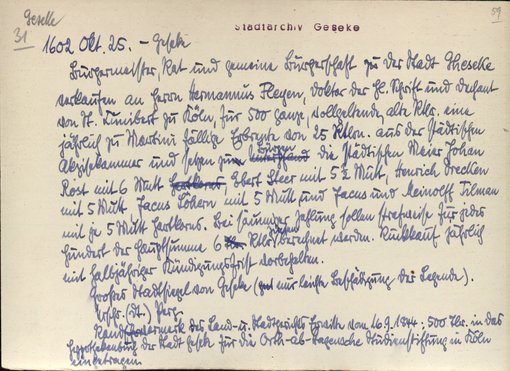 Geseke
31
59
Stadtarchiv Geseke
1602 Okt. 25. - Geseke
Bürgermeister, Rat und gemeine Bürgerschaft zu der Stadt Gheseke
verkaufen an Herrn Hermannus Flegen, Doktor der Hl. Schrift und Dechant
von St. Cunibert zu Köln, für 500 ganze, vollgeltende, alte Rtlr. eine
jährlich zu Martini fällige Erbrente von 25 Rtlrn. aus der städtischen
Akzisekammer und setzen zu Bürgen die städtischen Meier Johan
Rost mit 6 Mutt Ebert Steer mit 5 ½ Mutt, Henrich Drecken
mit 5 Mutt Jacus Löbern mit 5 Mutt und Jacus und Meinolff Tilman
mit je 5 Mutt Hartkorns. Bei säumiger Zahlung sollen strafweise für jedes
Hundert der Hauptsumme 6 Rtlr berechnet werden. Rückkauf jährlich
mit halbjähriger Kündigungsfrist vorbehalten.
Großes Stadtsiegel von Geseke (nur leichte Beschädigung der Legende).
Urschr. (dt.) Perg.
Randvermerk des Land- u. Stadtgerichts Erwitte vom 16.9.1844: 500 Tlr. in das
Hypothekenbuch der Stadt Geseke für die Orth-ab-Hagensche Studienstiftung in Köln
eingetragen.